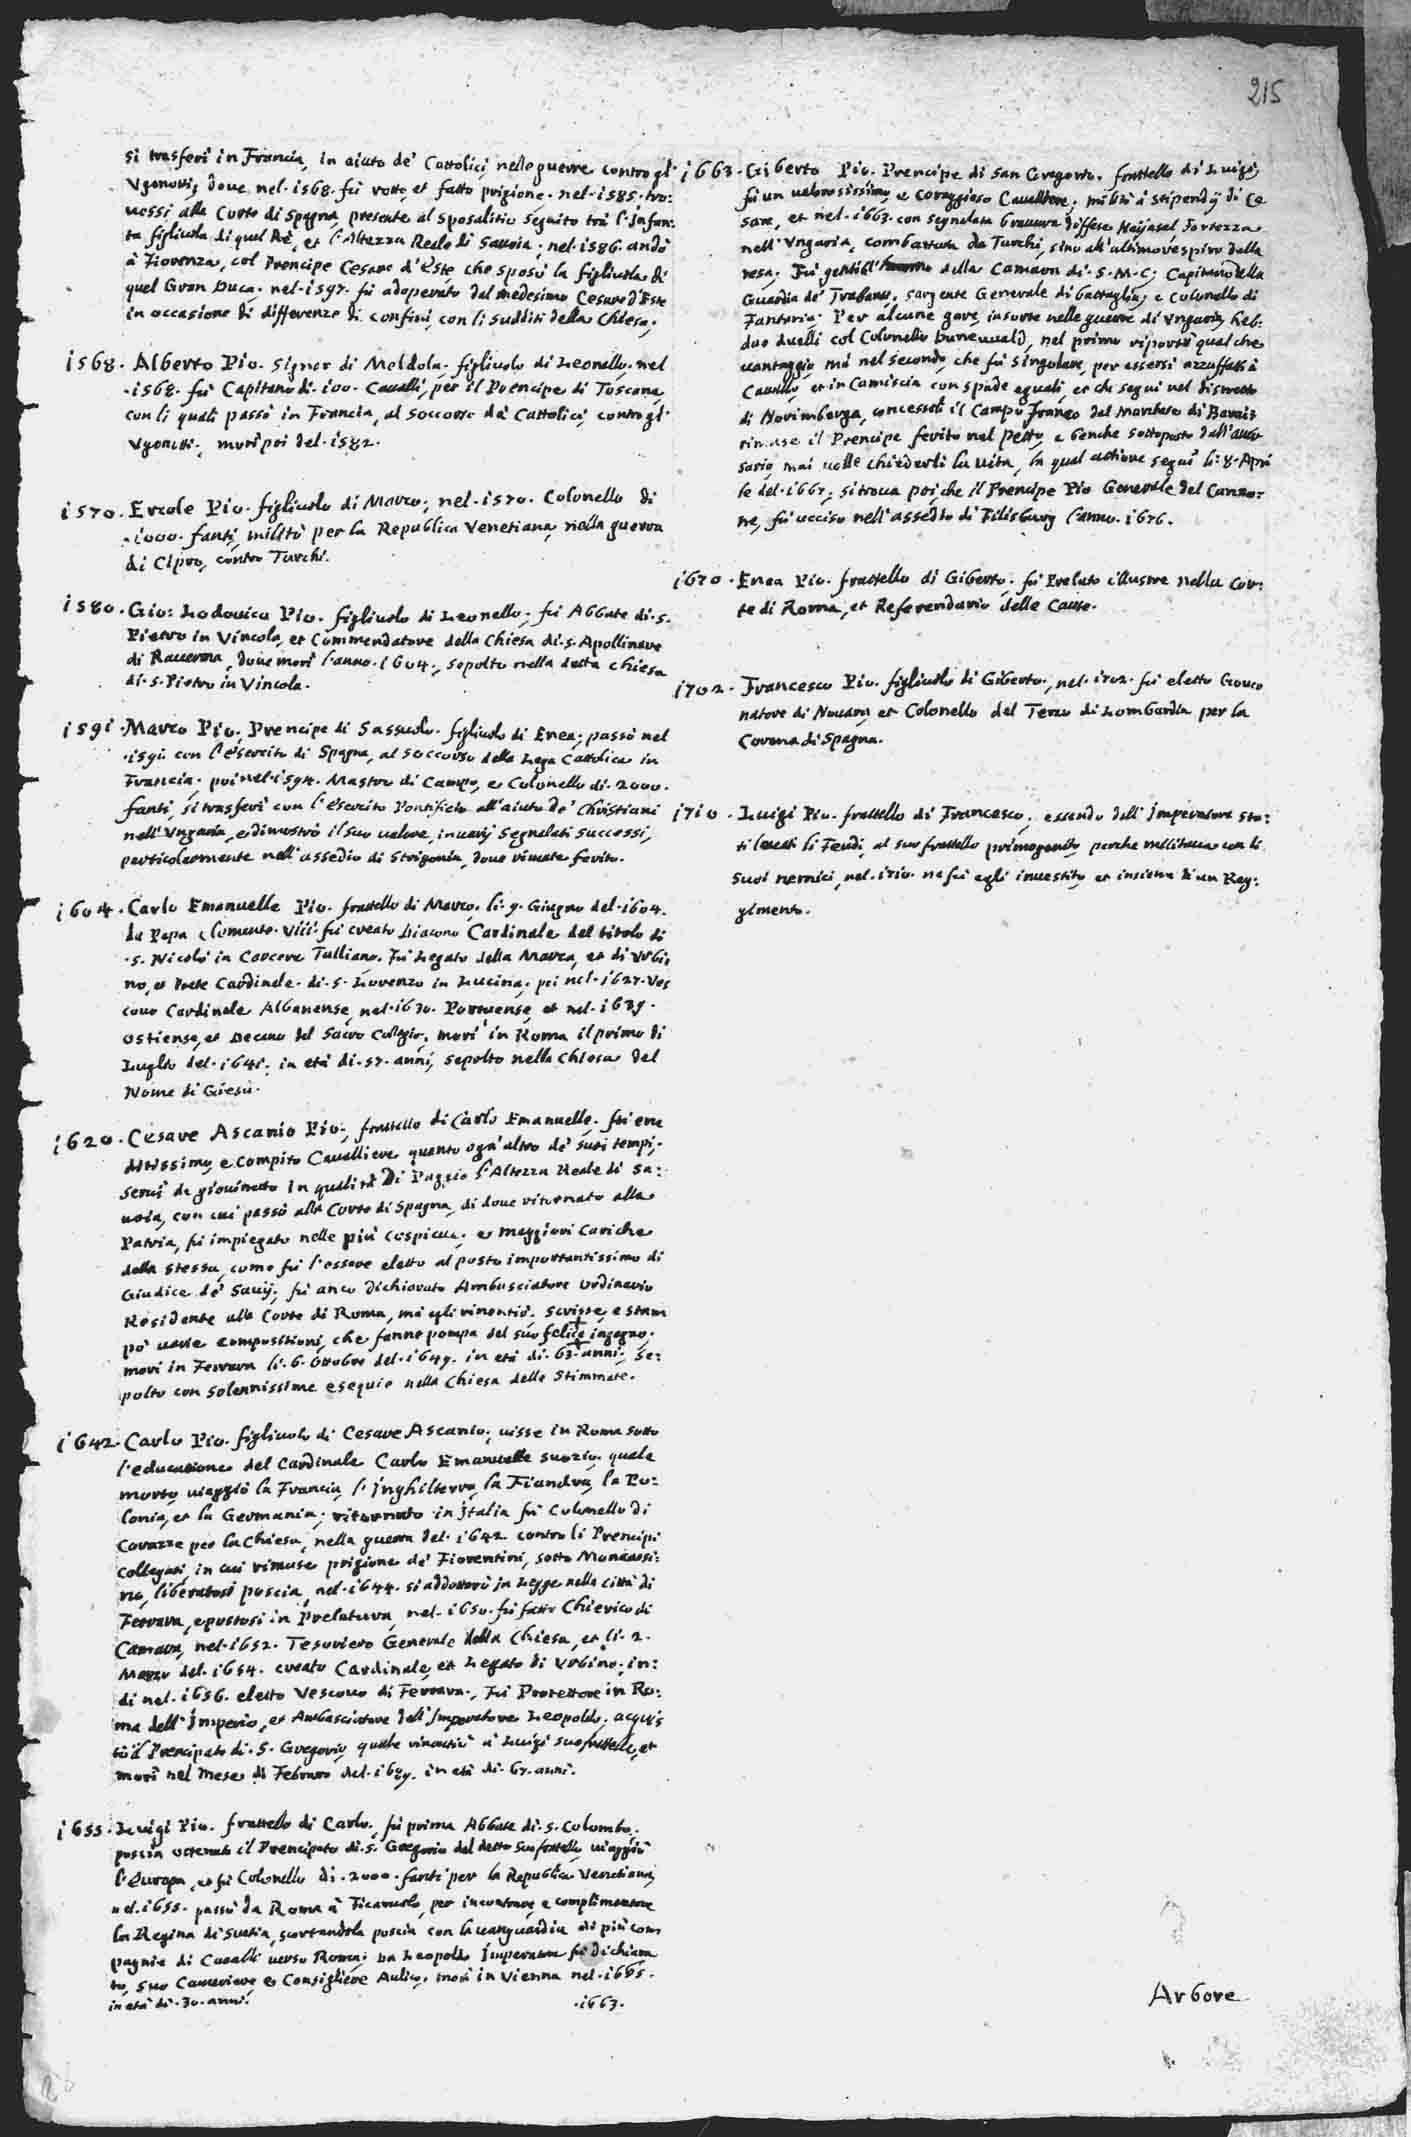 215
si trasferì in Francia, in aiuto de' Cattolici, nelle guerre contro gl'
Vgonotti, doue nel .1568. fù rotto, et fatto prigione. nel .1585. tro:
uossi alla Corte di Spagna, presente al Sposalitio seguito trà l'Infan:
ta figliuola di quel Rè, et l'Altezza Reale di Sauoia; nel .1586. andò
à Fiorenza, col Prencipe Cesare d'Este, che sposò la figliuola di
quel Gran Duca. nel .1597. fù adoperato dal medesimo Cesare d'Este
in occasione di differenze di confini, con li sudditi della Chiesa.
1568. Alberto Pio. Signor di Meldola. figliuolo di Leonello. nel
.1568. fù Capitano di .100. Caualli, per il Prencipe di Toscana,
con li quali passò in Francia, al soccorso dà Cattolici, contro gl'
Vgonotti. morì poi del .1582.
1570. Ercole Pio. figliuolo di Marco; nel .1570. Colonello di
.1000. fanti, militò per la Republica Venetiana, nella guerra
di Cipro, contro Turchi.
1580. Gio: Lodouico Pio. figliuolo di Leonello; fù Abbate di .S.
Pietro in Vincola, et Commendatore della Chiesa di .S. Apollinare
di Rauenna, doue morì l'anno .1604., sepolto nella detta chiesa
di .S. Pietro in Vincola.
1591. Marco Pio, Prencipe di Sassuolo. figliuolo di Enea; passò nel
.1591. con l'esercito di Spagna, al soccorso della Lega Cattolica in
Francia. poi nel .1594. Mastro di Campo, e Colonello di .2000.
fanti, si trasferì con l'esercito Pontificio all'aiuto de' Christiani
nell'Vngaria, e dimostrò il suo ualore, in uarij segnalati successi,
particolarmente nell'assedio di Strigonia, doue rimase ferito.
1604. Carlo Emanuelle Pio. fratello di Marco, li .9. Giugno del .1604.
da Papa Clemente .VIII. fù creato Diacono Cardinale del titolo di
.S. Nicolò in Carcere Tulliano. Fù Legato della Marca, et di Vrbi:
no, et Prete Cardinale di .S. Lorenzo in Lucina. poi nel .1627. Ves
couo Cardinale Albanense, nel .1630. Portuense, et nel .1639.
Ostiense, et Decano del Sacro Collegio. morì in Roma il primo di
Luglio del .1641. in età di .57. anni, sepolto nella Chiesa del
Nome di Giesù.
1620. Cesare Ascanio Pio., fratello di Carlo Emanuelle. fù eru
ditissimo, e compito Caualliere quanto ogn'altro de' suoi tempi.
Seruì da giouinetto in qualità Di Paggio l'Altezza Reale di Sa:
uoia, con cui passò alla Corte di Spagna, di doue ritornato alla
Patria, fù impiegato nelle più cospicue, e maggiori Cariche
della stessa, come fù l'essere eletto al posto importantissimo di
Giudice de' Sauij. fù anco dichiarato Ambasciatore Ordinario
Residente alla Corte di Roma, mà egli rinontiò. Scrisse, e stam
pò uarie compositioni, che fanno pompa del suo felice ingegno.
morì in Ferrara li .6. Ottobre del .1649. in età di .63. anni, Se:
polto con solennissime esequie nella Chiesa delle Stimmate.
1642. Carlo Pio. figliuolo di Cesare Ascanio, uisse in Roma sotto
l'educatione del Cardinale Carlo Emanuelle suo zio. quale
morto, uiaggiò la Francia, l'Inghilterra, la Fiandra, la Po:
lonia, et la Germania; ritornato in Italia fù Colonello di
Corazze per la Chiesa, nella guerra del .1642. contro li Prencipi
Collegati, in cui rimase prigione de' Fiorentini, sotto
liberatosi poscia, nel .1644. si addottorò in Legge nella città di
Ferrara, e postosi in Prelatura, nel .1650. fù fatto Chierico di
Camara, nel .1652. Tesoriero Generale della Chiesa, et li .2.
Marzo del .1654. creato Cardinale, et Legato di Vrbino. in:
di nel .1656. eletto Vescouo di Ferrara. Fù Protettore in Ro:
ma dell'Imperio, et Ambasciatore dell'Imperatore Leopoldo. acquis
tò il Prencipato di .S. Gregorio, quale rinontiò à Luigi suo fratello, et
morì nel mese di Febraro del .1689. in età di .67. anni.
1655. Luigi Pio. fratello di Carlo, fù prima Abbate di .S. Colombo.
poscia ottenuto il Prencipato di .S. Gregorio dal detto suo fratello, uiaggiò
l'Europa, et fù Colonello di .2000. fanti per la Republica Venetiana,
nel .1655. passò da Roma à Ficaruolo, per incontrare, e complimentare
la Regina di Suetia, scortandola poscia con la uanguardia di più com
pagnie di Caualli uerso Roma; da Leopoldo Imperatore fù dichiara
to, suo Cameriere e Consigliere Aulico. morì in Vienna nel .1665.
in età di .30. anni. .1663.
1663. Giberto Pio. Prencipe di San Gregorio. fratello di Luigi,
fù un ualorosissimo, e coraggioso Caualliere. militò à stipendij di Ce
sare, et nel .1663. con segnalata brauura diffese Naijasel Fortezza
nell'Vngaria, combattuta da Turchi, sino all'ultimo respiro della
resa. Fù gentil' della Camara di .S.M.C; Capitano della
Guardia de' Trabanti, Sargente Generale di battaglia, e Colonello di
Fanteria. Per alcune gare, insorte nelle guerre di Vngaria, heb:
due duelli col Colonello, nel primo riportò qualche
uantaggio, mà nel secondo, che fù singolare, per essersi azzuffati à
Cauallo, et in Camiscia con spade eguali, et che seguì nel distretto
di Norimberga, concessoli il Campo franco dal Marchese di
rimase il Prencipe ferito nel petto, e benche sottoposto dall'auer
sario, mai uolle chiederli la uita, la qual attione seguì li .8. Apri
le del .1667; si troua poi, che il Prencipe Pio Generale del Canno:
ne, fù ucciso nell'assedio di Filisburg l'anno .1676.
1670. Enea Pio. fratello di Giberto. fù Prelato illustre nella Cor:
te di Roma, et Referendario delle Cause.
1702. Francesco Pio. figliuolo di Giberto., nel .1702. fù eletto Gouer
natore di Nouara, et Colonello del Terzo di Lombardia per la
Corona di Spagna.
1710. Luigi Pio. fratello di Francesco; essendo dall'Imperatore sta:
ti leuati li Feudi, al suo fratello primogenito, perche militaua con li
suoi nemici, nel .1710. ne fù egli inuestito, et insieme di un Reg:
gimento.
Arbore